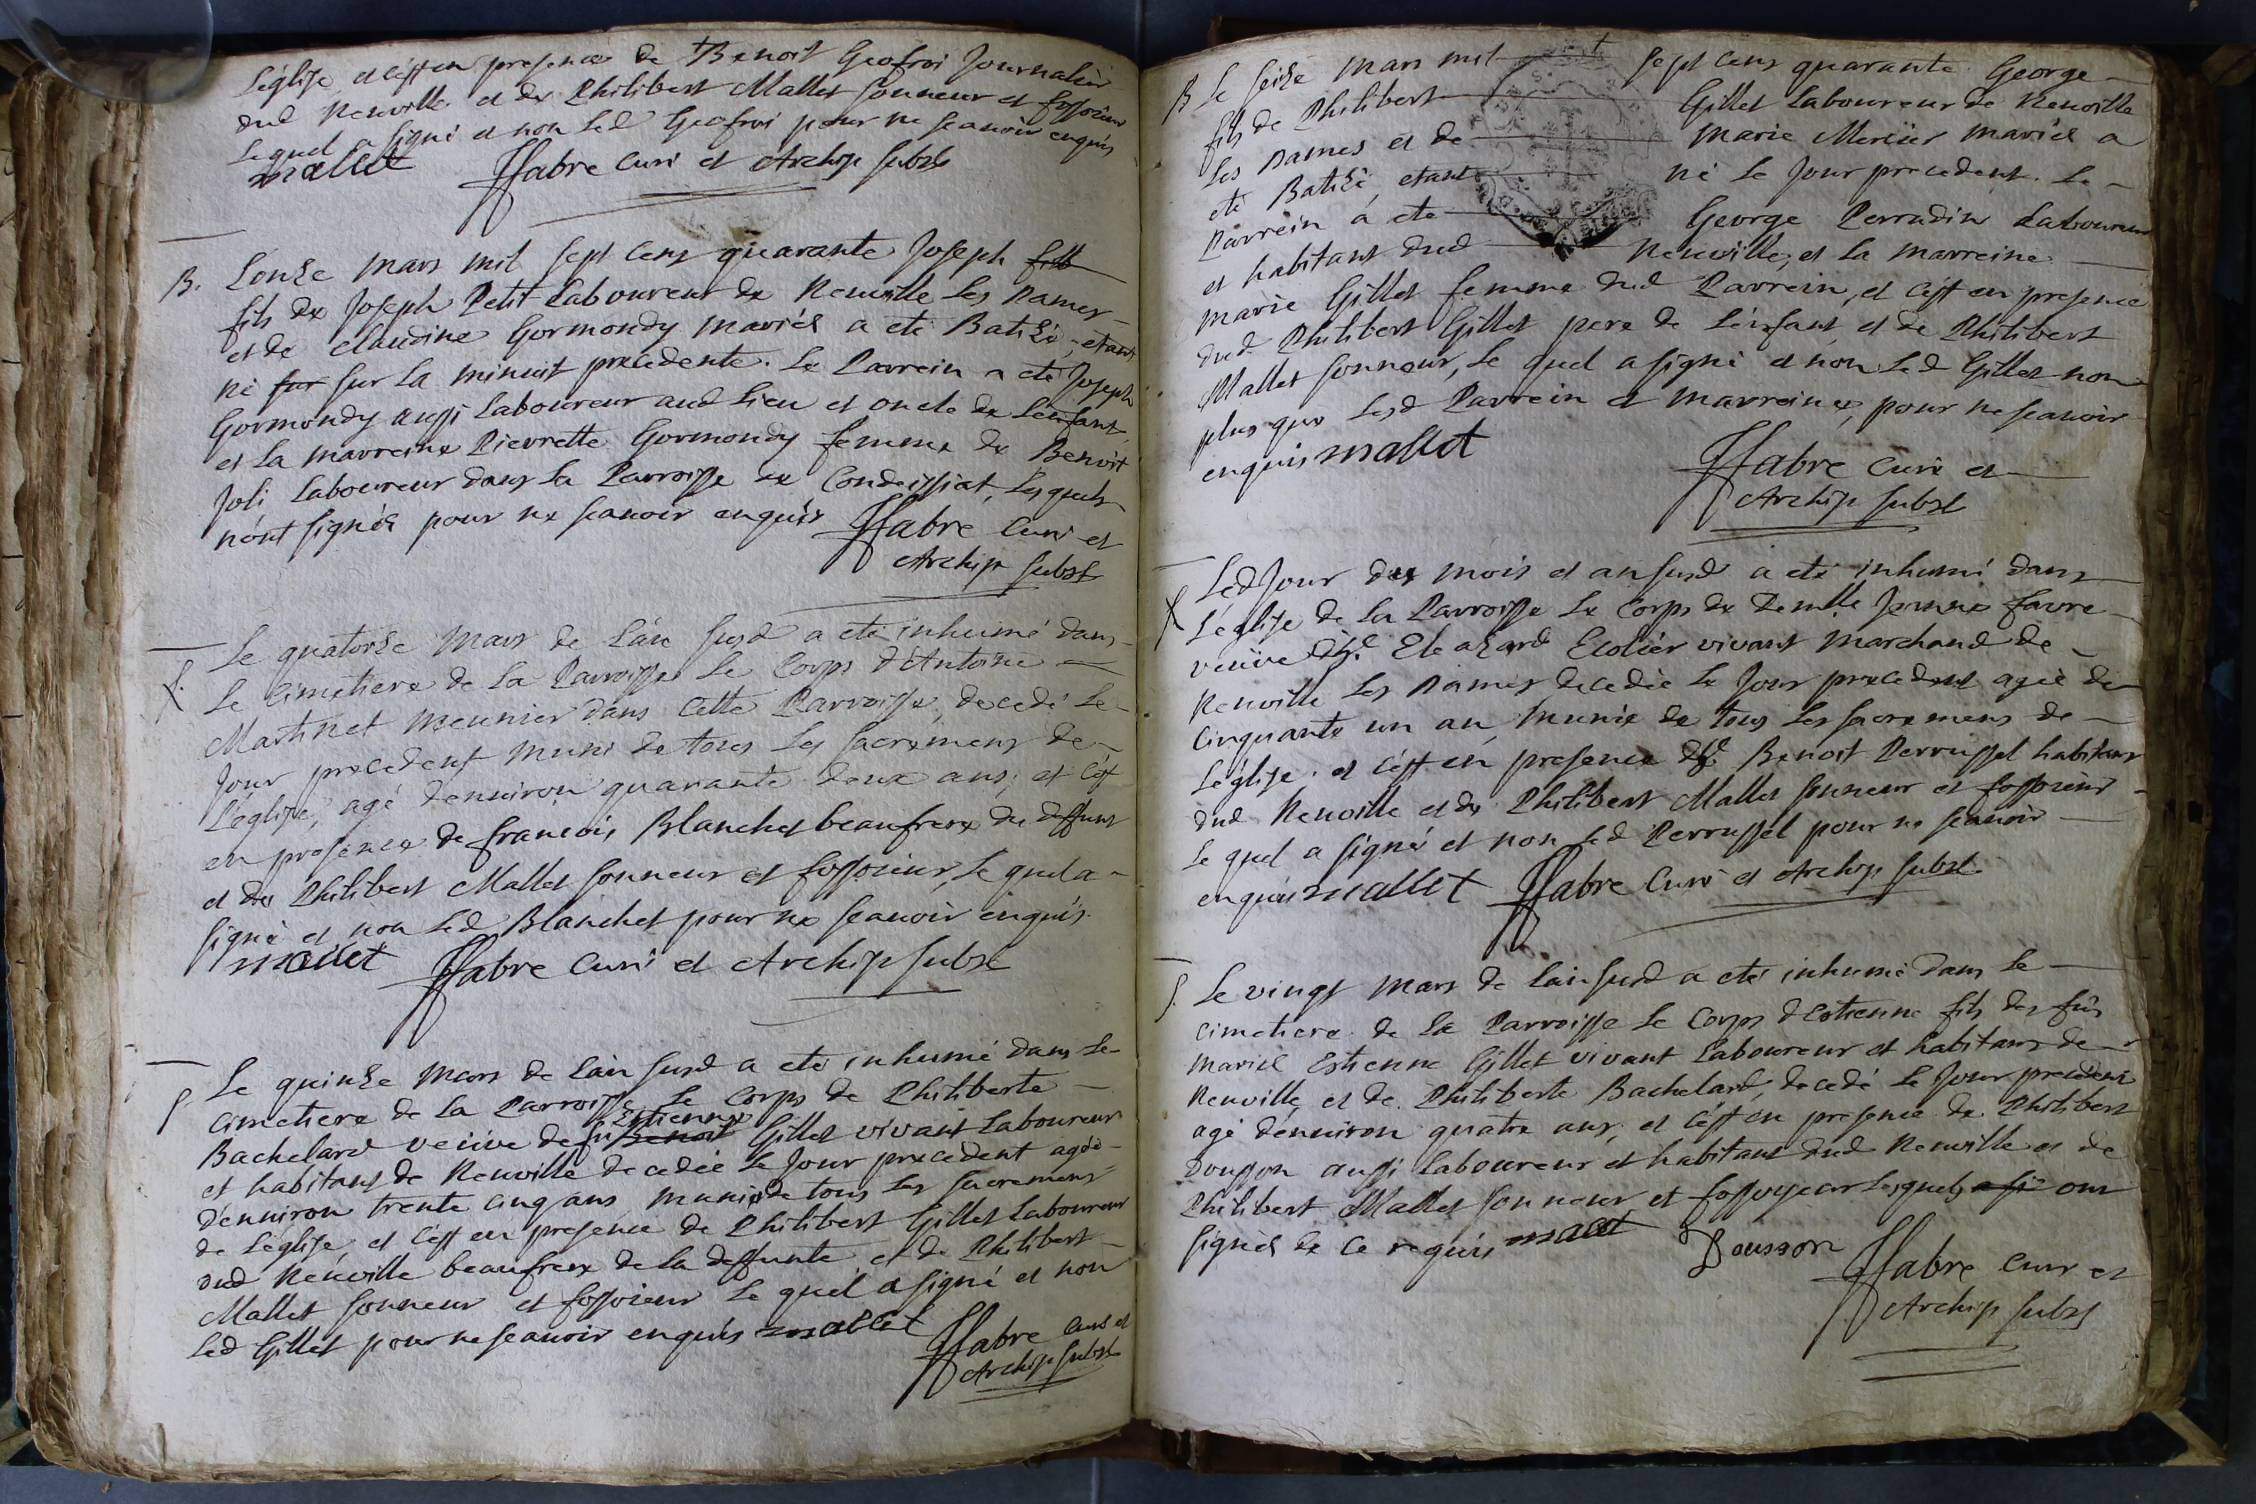 L'église, et c'est en presence de Benoit Geofroi Journalier
dud Neuville et de Philibert Mallet sonneur et fossoieur
lequel a signé et non led Geofroi pour ne scavoir enquis
mallet ffabre Curé et Archip subst
B. L'onze mars mil sept cens quarante Joseph fils
fils de Joseph Petit Laboureur de Neuville les Dames
et de claudine Gormondy mariés a eté Batisé, etant
né sur sur la minuit precedente. Le Parrein a eté Joseph
Gormondy aussi Laboureur aud Lieu et oncle de L'enfant
et la marreine Pierrette Gormondy femme de Benoit
Joli Laboureur dans la Parroisse de Condeissiat, lesquels
n'ont signés pour ne scavoir enquis ffabre Curé et
Archip subst
S. Le quatorse mars de L'an susd a eté inhumé dans
Le Cimetiere de la Parroisse Le Corps d'Antoine
Martinet meunier dans cette Parroisse, decedé le
Jour precedent muni de tous les sacremens de
L'église, agé d'environ quarante deux ans; et c'est
en presence de francois Blanchet beaufrere du deffunt
et de Philibert Mallet sonneur et fossoieur, le quel a
signé et non led Blanchet pour ne scavoir enquis
mallet ffabre Curé et Archip subst
S Le quinse mars de L'an susd a eté inhumé dans le
Cimetiere de la Parroisse Le Corps de Philiberte
Estienne
Bachelard veuve de fu Benoit Gillet vivant Laboureur
et habitant de Neuville decedée le Jour precedent agée
d'environ trente cinq ans munie de tous les sacremens
de L'église, et c'est en presence de Philibert Gillet Laboureur
dud Neuville beaufrere de la deffunte et de Philibert
Mallet sonneur et fossoieur le quel a signé et non
led Gillet pour ne scavoir enquis mallet ffabre Curé et
Archip subst
B Le seise mars mil sept cens quarante George
fils de Philibert Gillet Laboureur de Neuville
les Dames et de marie Mercier mariés a
eté Batisé, etant né le Jour precedent. Le
Parrein a eté George Perradin Laboureur
et habitant dud Neuville, et la marreine
marie Gillet femme dud Parrein, et c'est en presence
dud Philibert Gillet pere de L'enfant et de Philibert
Mallet sonneur, le quel a signé et non led Gillet non
plus que lesd Parrein et marreine, pour ne scavoir
enquis mallet ffabre Curé et
Archip subst
S Led Jour des mois et an susd a eté inhumé dans
L'église de la Parroisse Le Corps de Demlle Jeanne favre
veuve de Sr Eleazard Ecolier vivant marchand de
Neuville les Dames decedée le Jour precedent agée de
cinquante un an, munie de tous les sacremens de
L'église. et c'est en presence de Sr Benoit Perrussel habitant
dud Neuville et de Philibert Mallet sonneur et fossoieur
le quel a signé et non led Perrussel pour ne scavoir
enquis mallet ffabre Curé et Archip subst
S. Le vingt mars de L'an susd a eté inhumé dans le
Cimetiere de la Parroisse le Corps d'Estienne fils des fus
mariés Estienne Gillet vivant Laboureur et habitant de
Neuville et de Philiberte Bachelard, decedé le Jour precedent
agé d'environ quatre ans, et c'est en presence de Philibert
Dousson aussi Laboureur et habitant dud Neuville et de
Philibert Mallet sonneur et fossoyeur lesquels a si ont
signés de ce requis mallet Dousson
ffabre Curé et
Archip subst